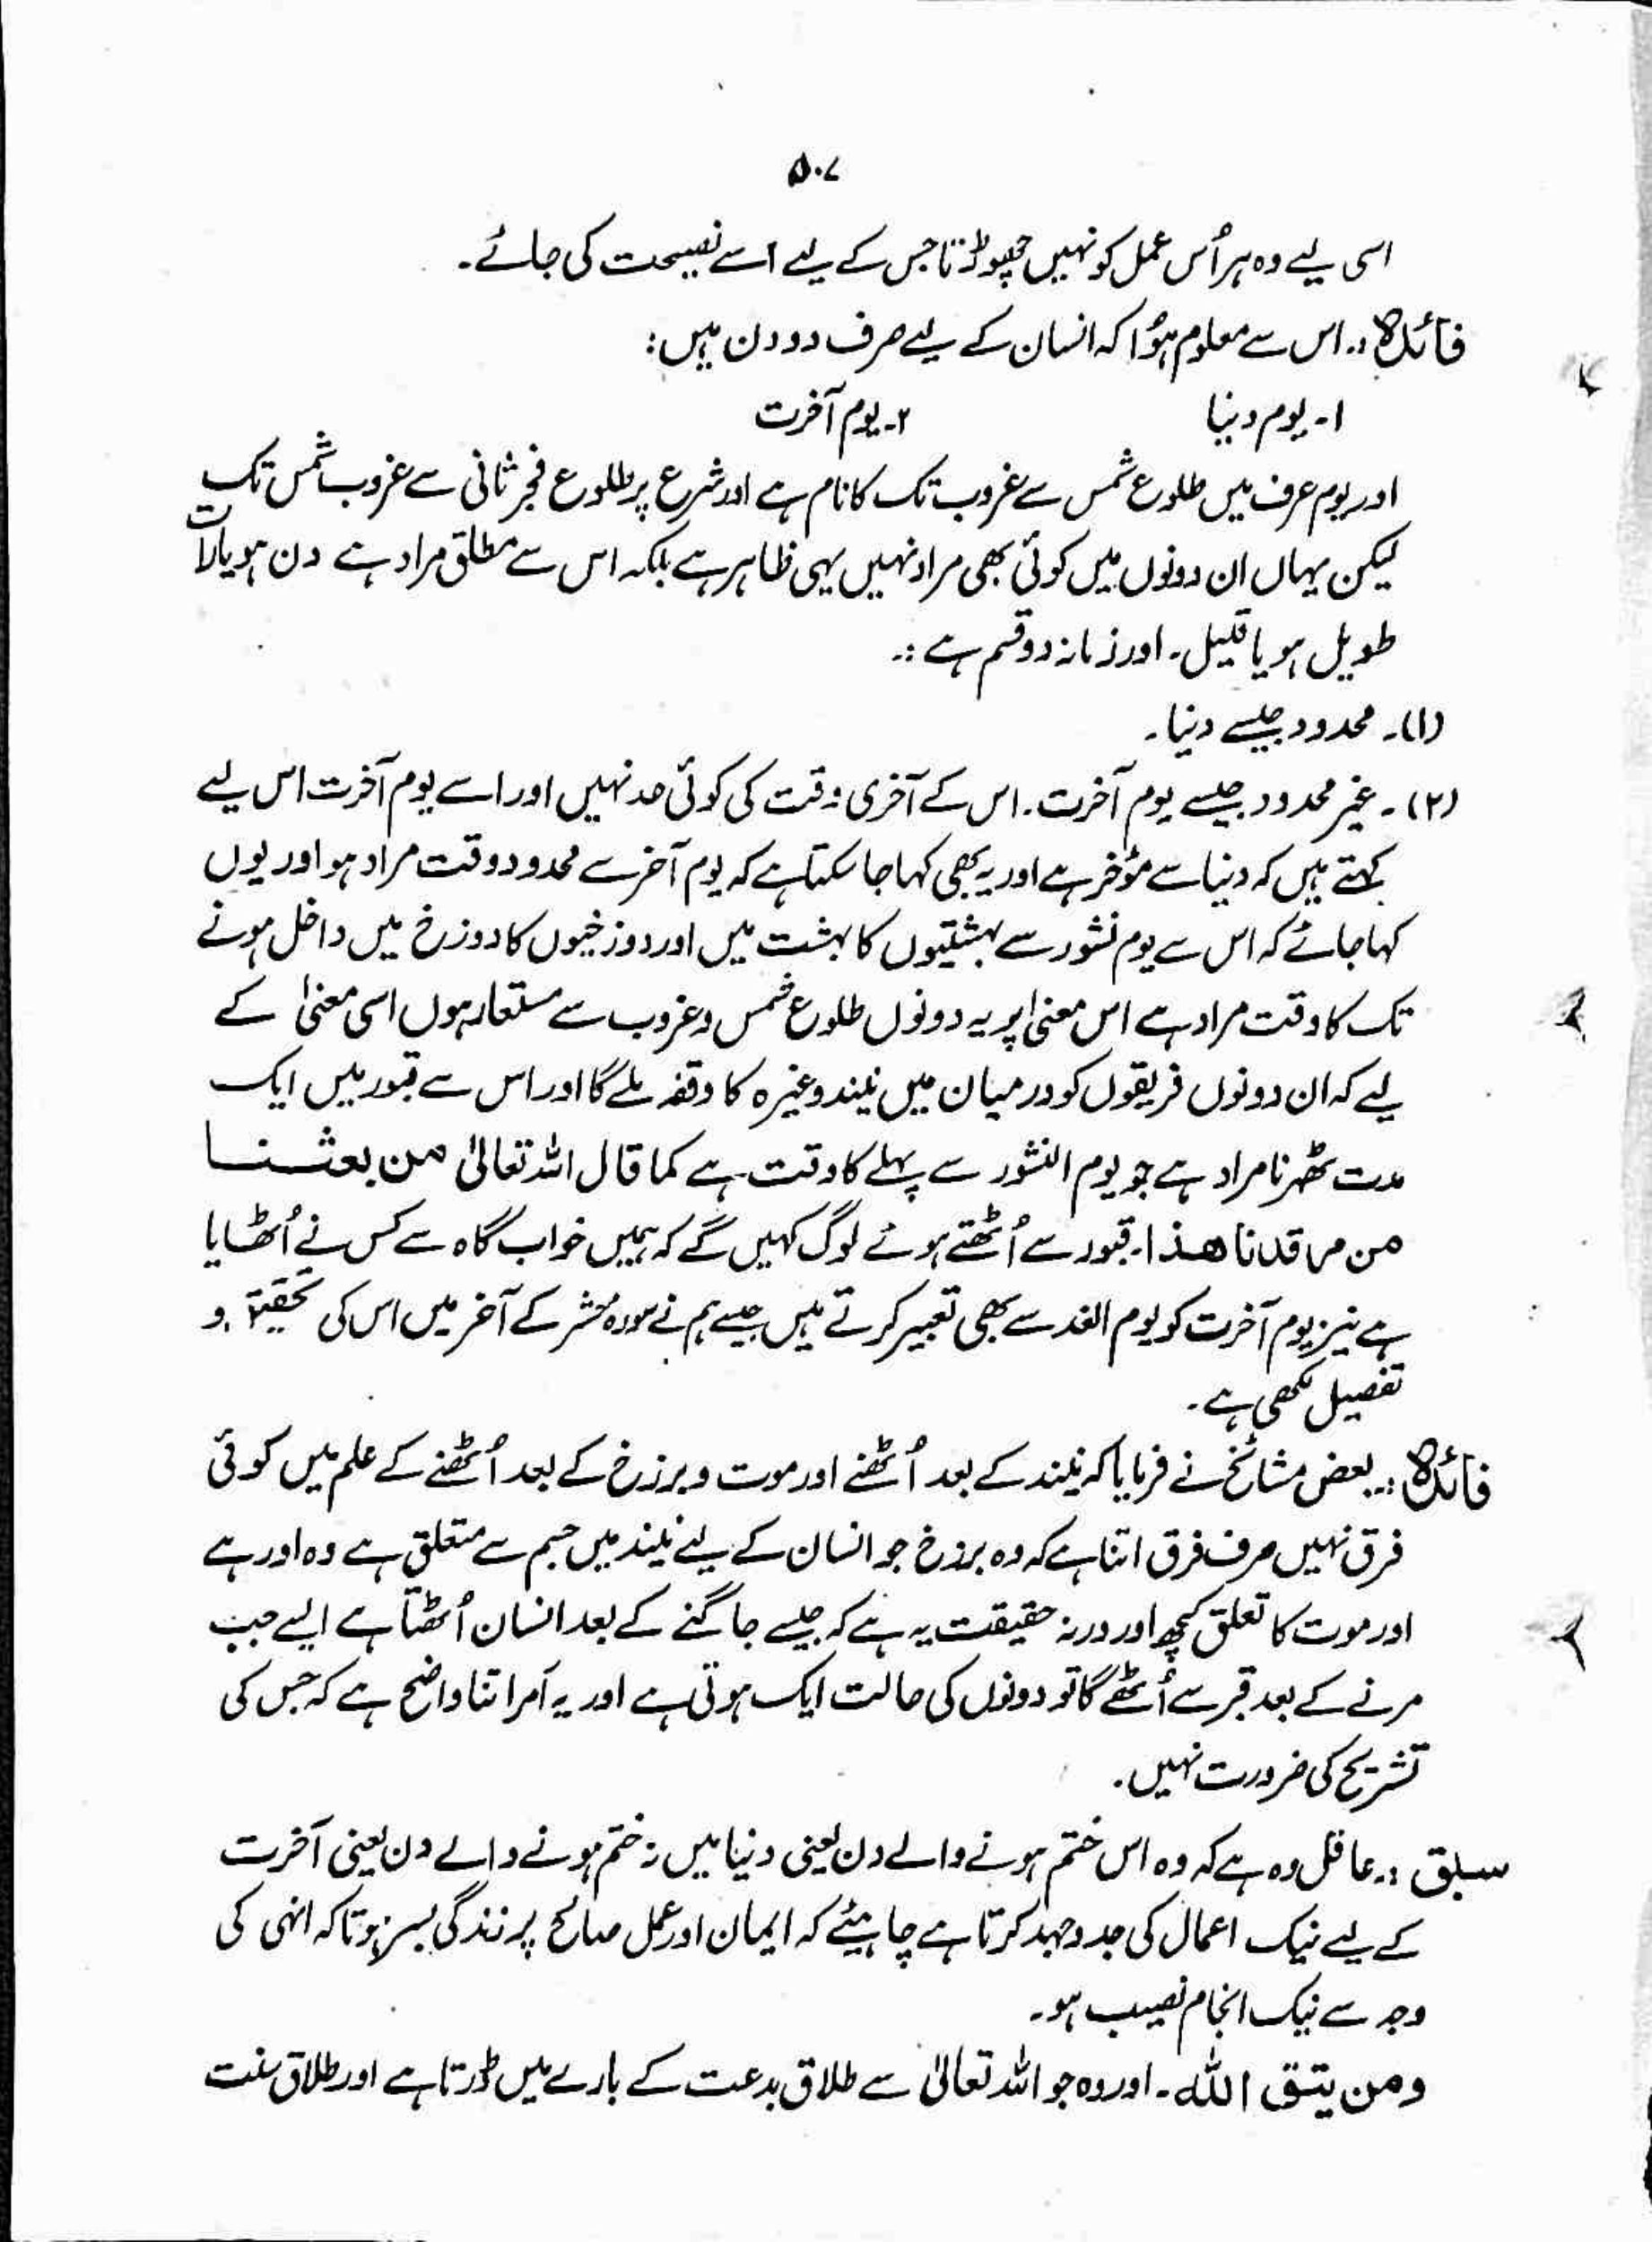 ۵۰۷
اسی لیے وہ ہر اُس عمل کو نہیں چھوڑتا جس کے لیے اسے نصیحت کی جائے۔
فائدہ:۔ اس سے معلوم ہُوا کہ انسان کے لیے صرف دو دن ہیں:
۱۔ یوم دنیا ۲۔ یوم آخرت
اور یوم عرف میں طلوع شمس سے غروب تک کا نام ہے اور شرع پر طلوع فجر ثانی سے غروب شمس تک
لیکن یہاں ان دونوں میں کوئی بھی مراد نہیں یہی ظاہر ہے بلکہ اس سے مطلق مراد ہے دن ہو یا رات
طویل ہو یا قلیل۔ اور زمانہ دو قسم ہے:۔
(۱)۔ محدود جیسے دنیا۔
(۲)۔ غیر محدود جیسے یوم آخرت۔ اس کے آخری وقت کی کوئی حد نہیں اور اسے یوم آخرت اس لیے
کہتے ہیں کہ دنیا سے مؤخر ہے اور یہ بھی کہا جا سکتا ہے کہ یوم آخر سے محدود وقت مراد ہو اور یوں
کہا جائے کہ اس سے یوم نشور سے بہشتیوں کا بہشت میں اور دوزخیوں کا دوزخ میں داخل ہونے
تک کا وقت مراد ہے اس معنیٰ پر یہ دونوں طلوع شمس و غروب سے مستعار ہوں اسی معنیٰ کے
لیے کہ ان دونوں فریقوں کو درمیان میں نیند وغیرہ کا وقفہ ملے گا اور اس سے قبور میں ایک
مدت ٹھہرنا مراد ہے جو یوم النشور سے پہلے کا وقت ہے کما قال اللہ تعالیٰ من بعثنا
من مرقدنا ھذا۔ قبور سے اُٹھتے ہوئے لوگ کہیں گے کہ ہمیں خواب گاہ سے کس نے اُٹھایا
ہے نیز یوم آخرت کو یوم الغد سے بھی تعبیر کرتے ہیں جیسے ہم نے سورہ حشر کے آخر میں اس کی تحقیق و
تفصیل لکھی ہے۔
فائدہ:۔ بعض مشائخ نے فرمایا کہ نیند کے بعد اُٹھنے اور موت و برزخ کے بعد اُٹھنے کے علم میں کوئی
فرق نہیں صرف فرق اتنا ہے کہ وہ برزخ جو انسان کے لیے نیند میں جسم سے متعلق ہے وہ اور ہے
اور موت کا تعلق کچھ اور ورنہ حقیقت یہ ہے کہ جیسے جاگنے کے بعد انسان اُٹھتا ہے ایسے جب
مرنے کے بعد قبر سے اُٹھے گا تو دونوں کی حالت ایک ہوتی ہے اور یہ اَمر اتنا واضح ہے کہ جس کی
تشریح کی ضرورت نہیں۔
سبق:۔ عاقل وہ ہے کہ وہ اس ختم ہونے والے دن یعنی دنیا میں نہ ختم ہونے والے دن یعنی آخرت
کے لیے نیک اعمال کی جدوجہد کرتا ہے چاہیئے کہ ایمان اور عمل صالح پر زندگی بسر ہو تاکہ انہی کی
وجہ سے نیک انجام نصیب ہو۔
ومن یتق اللہ۔ اور وہ جو اللہ تعالیٰ سے طلاق بدعت کے بارے میں ڈرتا ہے اور طلاق سنت